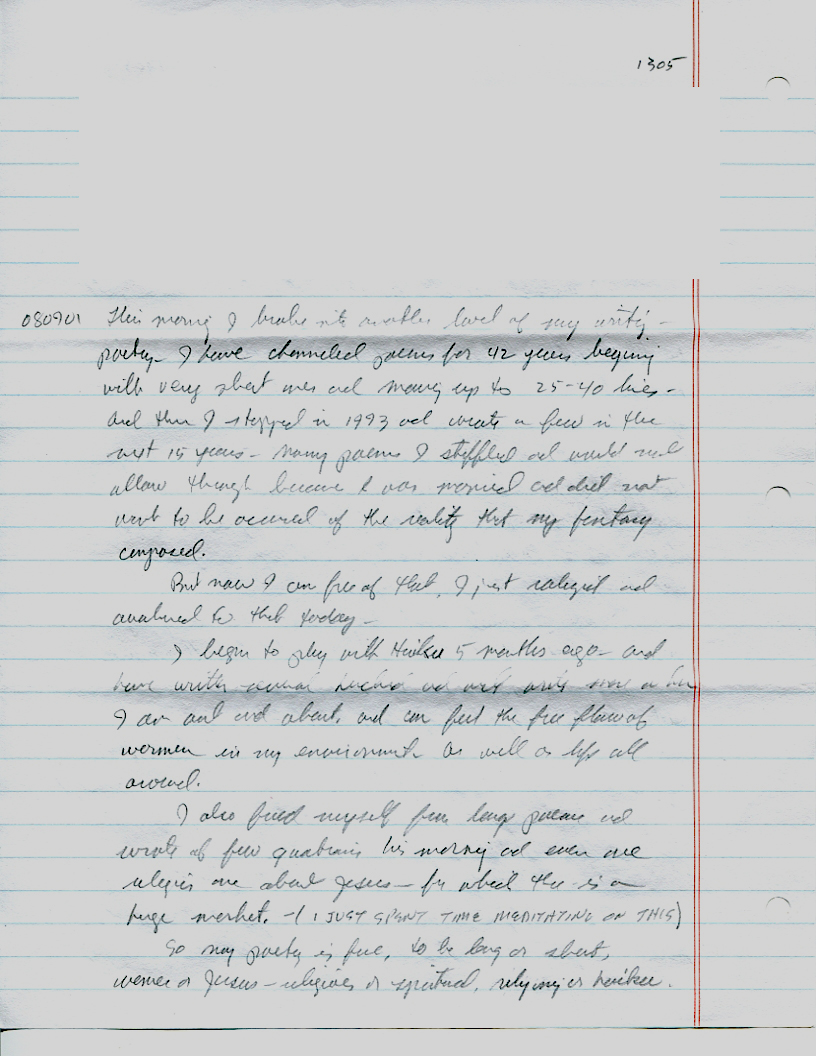 1305
080901 This morning I broke into another level of my writing -
poetry - I have channeled poems for 42 years begining
with very short ones and moving up to 25-40 lines -
and then I stopped in 1993 and wrote a few in the
next 15 years - many poems I stiffled and would not
allow through because I was married and did not
want to be accused of the reality that my fantasy
composed.
But now I am free of that, I just realized and
awakened to that today -
I began to play with Haiku 5 months ago - and
have written several hundred and write more when
I am out and about, and can feel the free flow of
women in my environment as well as life all
around.
I also freed myself from long poems and
wrote a few quatrains this morning and even one
religious one about Jesus - for which there is a
huge market. - ( I JUST SPENT TIME MEDITATING ON THIS )
So my poetry is free, to be long or short,
women or Jesus - religious or spiritual, rhyming or haiku.